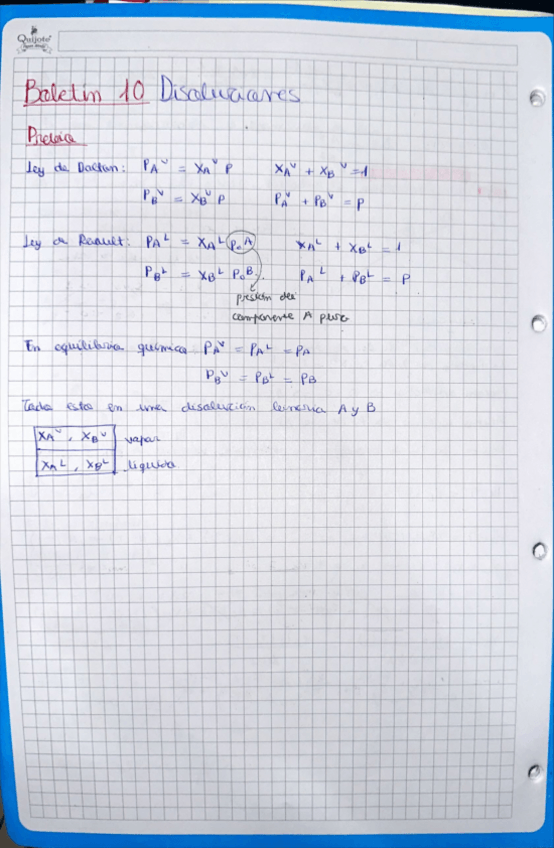 Quijote
Boletín 10 Disoluciones
Previa
Ley de Dalton: P_A^V = X_A^V P    X_A^V + X_B^V = 1
P_B^V = X_B^V P    P_A^V + P_B^V = P
Ley de Raoult: P_A^L = X_A^L P_0A    X_A^L + X_B^L = 1
P_B^L = X_B^L P_0B.    P_A^L + P_B^L = P
presión del
componente A puro
En equilibrio químico P_A^V = P_A^L = P_A
P_B^V = P_B^L = P_B
Todo esto en una disolución binaria A y B
X_A^V, X_B^V vapor
X_A^L, X_B^L líquido